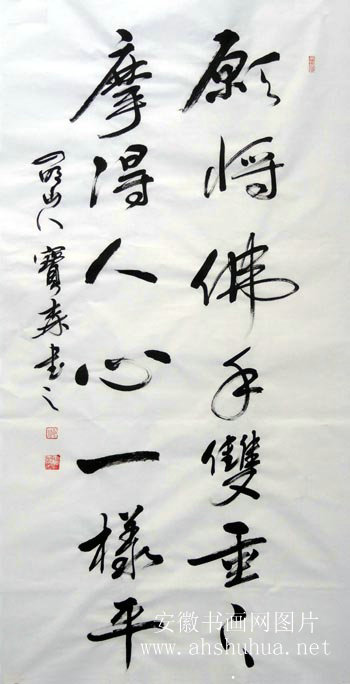 願将佛手雙垂下
摩得人心一樣平
山人寶森书之
安徽书画网图片
www.ahshuhua.net